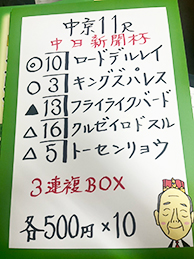 中京11R
中日新聞杯
◎10 ロードデルレイ
○3 キングズパレス
▲13 フライライクバード
△16 クルゼイロドスル
△5 トーセンリョウ
3連複BOX
各500円×10